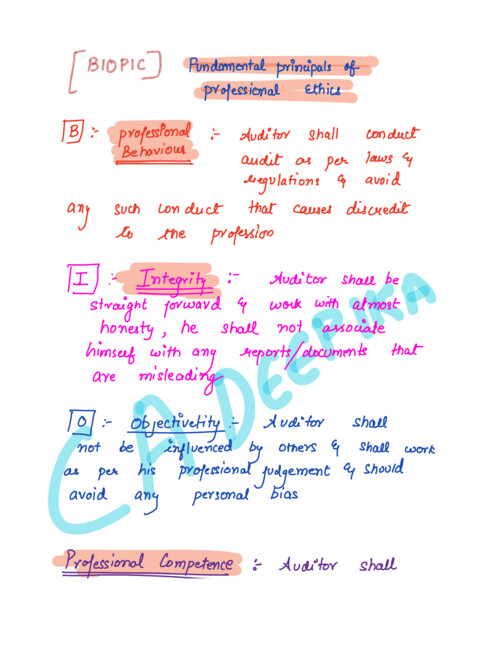 [BIOPIC] Fundamental principals of
professional Ethics
B :- professional :- Auditor shall conduct
Behaviour audit as per laws &
regulations & avoid
any such conduct that causes discredit
to the profession
I :- Integrity :- Auditor shall be
straight forward & work with almost
honesty, he shall not associate
himself with any reports/documents that
are misleading
O :- Objectivetity :- Auditor shall
not be influenced by others & shall work
as per his professional judgement & should
avoid any personal bias
Professional Competence :- Auditor shall
CA DEEPIKA